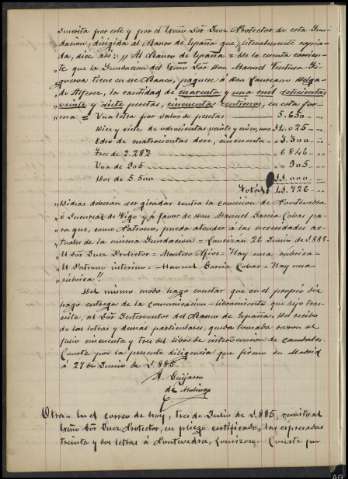 suscrita por este y por el Excmo Sor Juez Protector de esta Fun-
dacion, dirigida al Banco de España que literalmente copia-
da, dice asi: "Al Banco de España = de la cuenta corrien-
te que la Fundacion del Excmo Sor Don Manuel Ventura Fi-
gueroa tiene en ese Banco, páguese á don Laureano
de la cantidad de cuarenta y una mil setecientas
veinte y siete pesetas, cincuenta centimos, en esta for-
ma = Una letra por valor de pesetas 5.650
Diez y siete de seiscientas 11.025
Ocho de cuatrocientas doce, cincuenta 3.300
Tres de 2.282 6.846
Una de 905 905
Dos de 5.500 11.000
Total
deberán ser giradas contra la Comision de Pontevedra
ó Sucursal de Vigo y á favor de don Manuel Garcia Cobas, pa-
ra que, como Patrono, pueda atender á las necesidades ac-
tuales de la misma Fundacion = 26 Junio de 1885.
El Sor Juez Protector = Montero Rios = Hay una rubrica =
El Patrono interino = Manuel Garcia Cobas = Hay una
rubrica"
Del mismo modo hago constar que en el propio dia
hago entrega de la comunicacion libramiento que dejo trans-
crita, al Sor Interventor del Banco de España, del recibo
de las letras y demas particulares, queda tomada razon al
folio cincuenta y tres del libro de intervencion de caudales.
Consta por la presente diligencia que firmo en Madrid
á 27 de Junio de 1.885.
A. Guijarro
de Molina
Otra. En el correo de hoy, tres de Julio de 1.885, remito al
Excmo Sor Juez Protector, en pliego certificado, las espresadas
treinta y dos letras á Pontevedra, Lourizan. Consta por